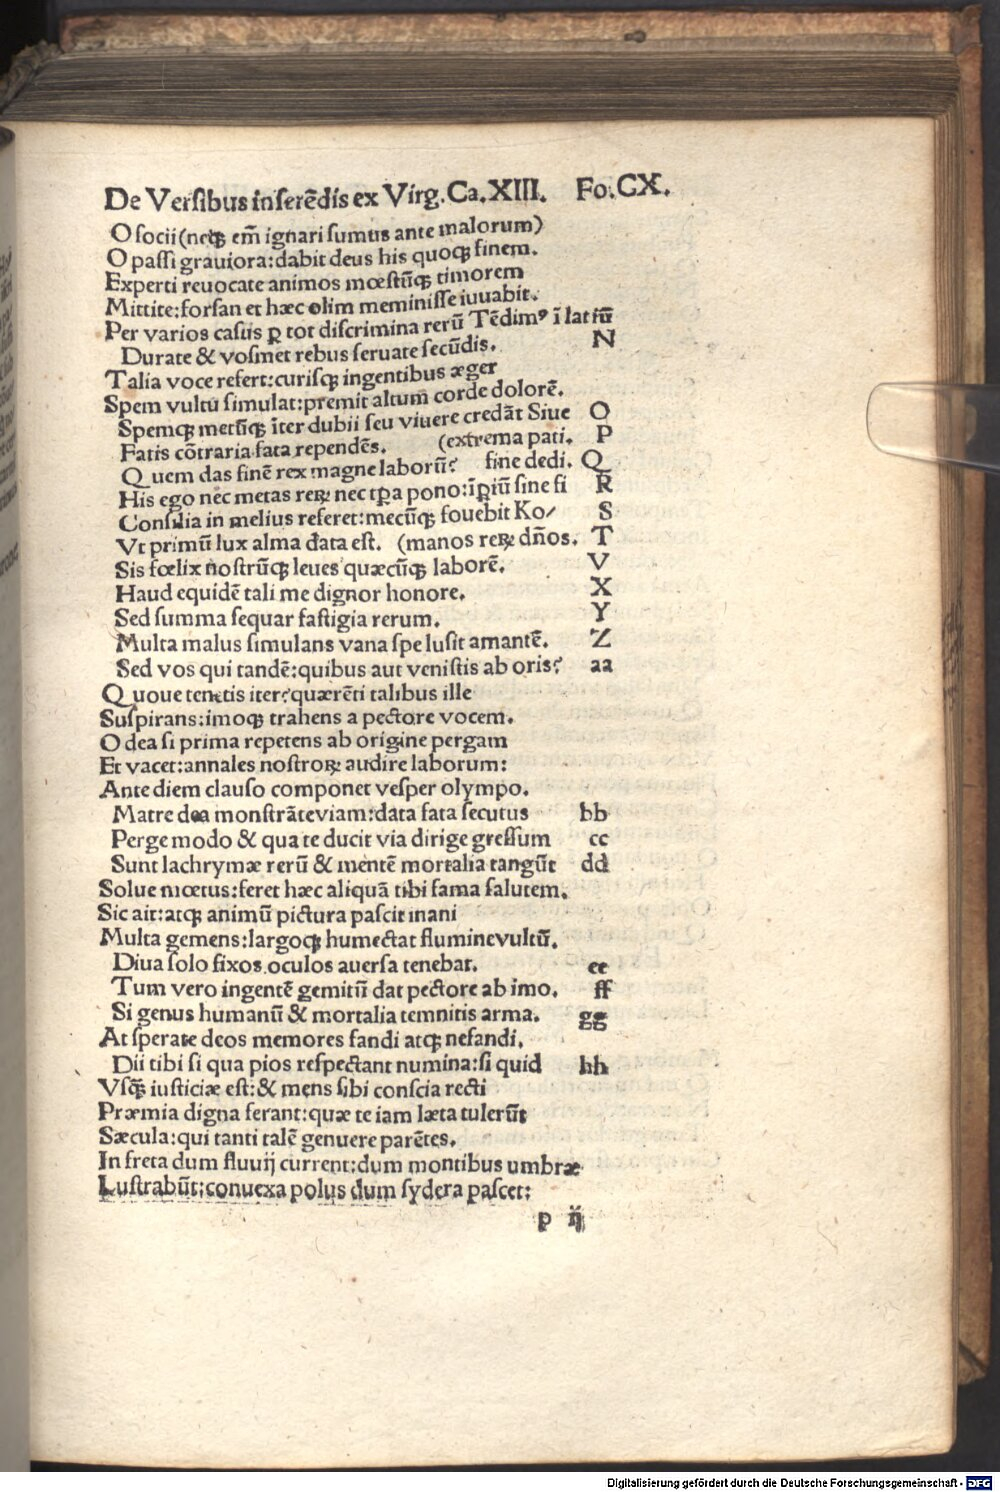 De Versibus inserēdis ex Virg. Ca. XIII. Fo. CX.
O socii (neqꝫ em̄ ignari sumus ante malorum)
O passi grauiora: dabit deus his quoqꝫ finem.
Experti reuocate animos mœstūqꝫ timorem
Mittite: forsan et hæc olim meminisse iuuabit.
Per varios casus ꝑ tot discrimina rerū Tēdimꝰ ī latiū
Durate & vosmet rebus seruate secūdis. N
Talia voce refert: curisqꝫ ingentibus æger
Spem vultu simulat: premit altum corde dolorē.
Spemqꝫ metūqꝫ īter dubii seu viuere credāt Siue O
Fatis cōtraria fata rependēs. (extrema pati. P
Quem das finē rex magne laborū? fine dedi. Q
His ego nec metas reꝝ nec tꝑa pono: īꝑiū sine fi R
Consilia in melius referet: mecūqꝫ fouebit Ko/ S
Vt primū lux alma data est. (manos reꝝ dños. T
Sis fœlix nostrūqꝫ leues quæcūqꝫ laborē. V
Haud equidē tali me dignor honore. X
Sed summa sequar fastigia rerum. Y
Multa malus simulans vana spe lusit amantē. Z
Sed vos qui tandē: quibus aut venistis ab oris? aa
Quoue tenetis iter? quærēti talibus ille
Suspirans: imoqꝫ trahens a pectore vocem.
O dea si prima repetens ab origine pergam
Et vacet: annales nostroꝝ audire laborum:
Ante diem clauso componet vesper olympo.
Matre dea monstrāte viam: data fata secutus bb
Perge modo & qua te ducit via dirige gressum cc
Sunt lachrymæ rerū & mentē mortalia tangūt dd
Solue mœtus: feret hæc aliquā tibi fama salutem.
Sic ait: atqꝫ animū pictura pascit inani
Multa gemens: largoqꝫ humectat flumine vultū.
Diua solo fixos oculos auersa tenebat. ee
Tum vero ingentē gemitū dat pectore ab imo. ff
Si genus humanū & mortalia temnitis arma. gg
At sperate deos memores fandi atqꝫ nefandi.
Dii tibi si qua pios respectant numina: si quid hh
Vsqꝫ iusticiæ est: & mens sibi conscia recti
Præmia digna ferant: quæ te iam læta tulerūt
Sæcula: qui tanti talē genuere parētes.
In freta dum fluuij current: dum montibus umbræ
Lustrabūt: conuexa polus dum sydera pascet:
p ij
Digitalisierung gefördert durch die Deutsche Forschungsgemeinschaft - DFG